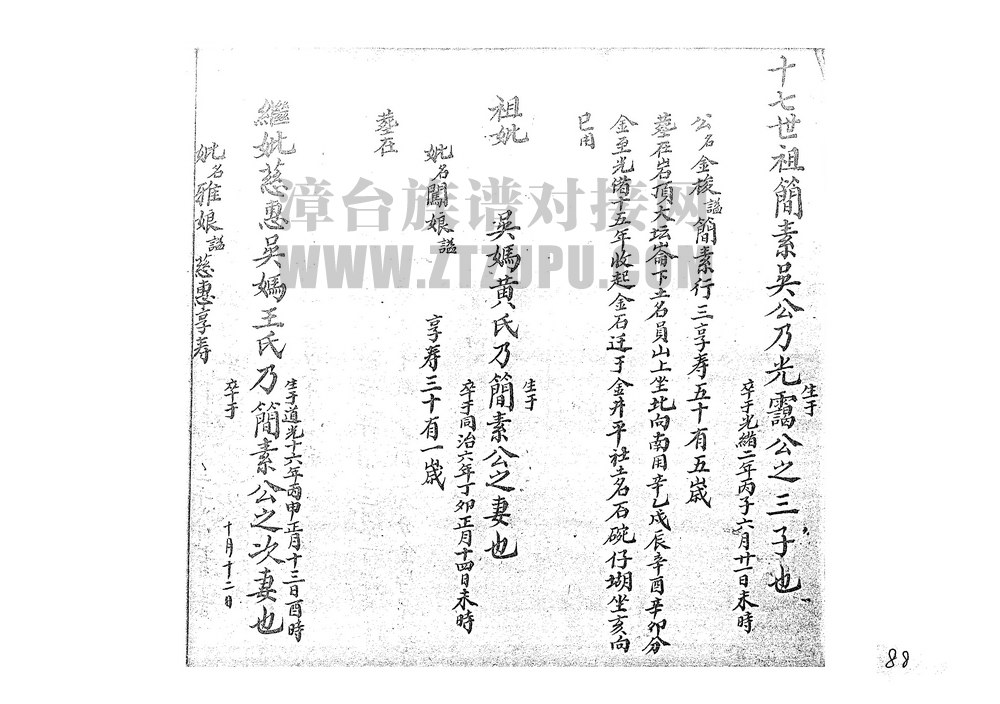 十七世祖簡素吳公乃光靄公之三子也
生于
卒于光緒二年丙子六月廿一日未時
公名金梭謚簡素行三享寿五十有五歲
墓在岩頂大坛崙下土名員山上坐北向南用辛乙戌辰辛酉辛卯分
金至光緒十五年收起金石迁于金井平社土名石碗仔堀坐亥向
巳用
祖妣 吳媽黄氏乃簡素公之妻也
生于
卒于同治六年丁卯正月十四日未時
妣名闖娘謚 享寿三十有一歲
墓在
繼妣慈惠吳媽王氏乃簡素公之次妻也
生于道光十六年丙申正月十三日酉時
卒于 十月十二日
妣名雅娘謚慈惠享寿
漳台族谱对接网
WWW.ZTZUPU.COM
88